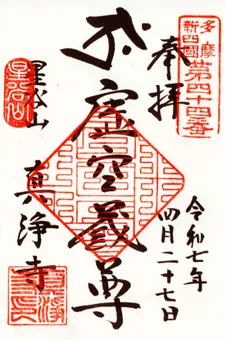 多摩
新四國
第四十四番
奉拝
令和七年
四月二十七日
虚空蔵尊
星谷山
真浄寺